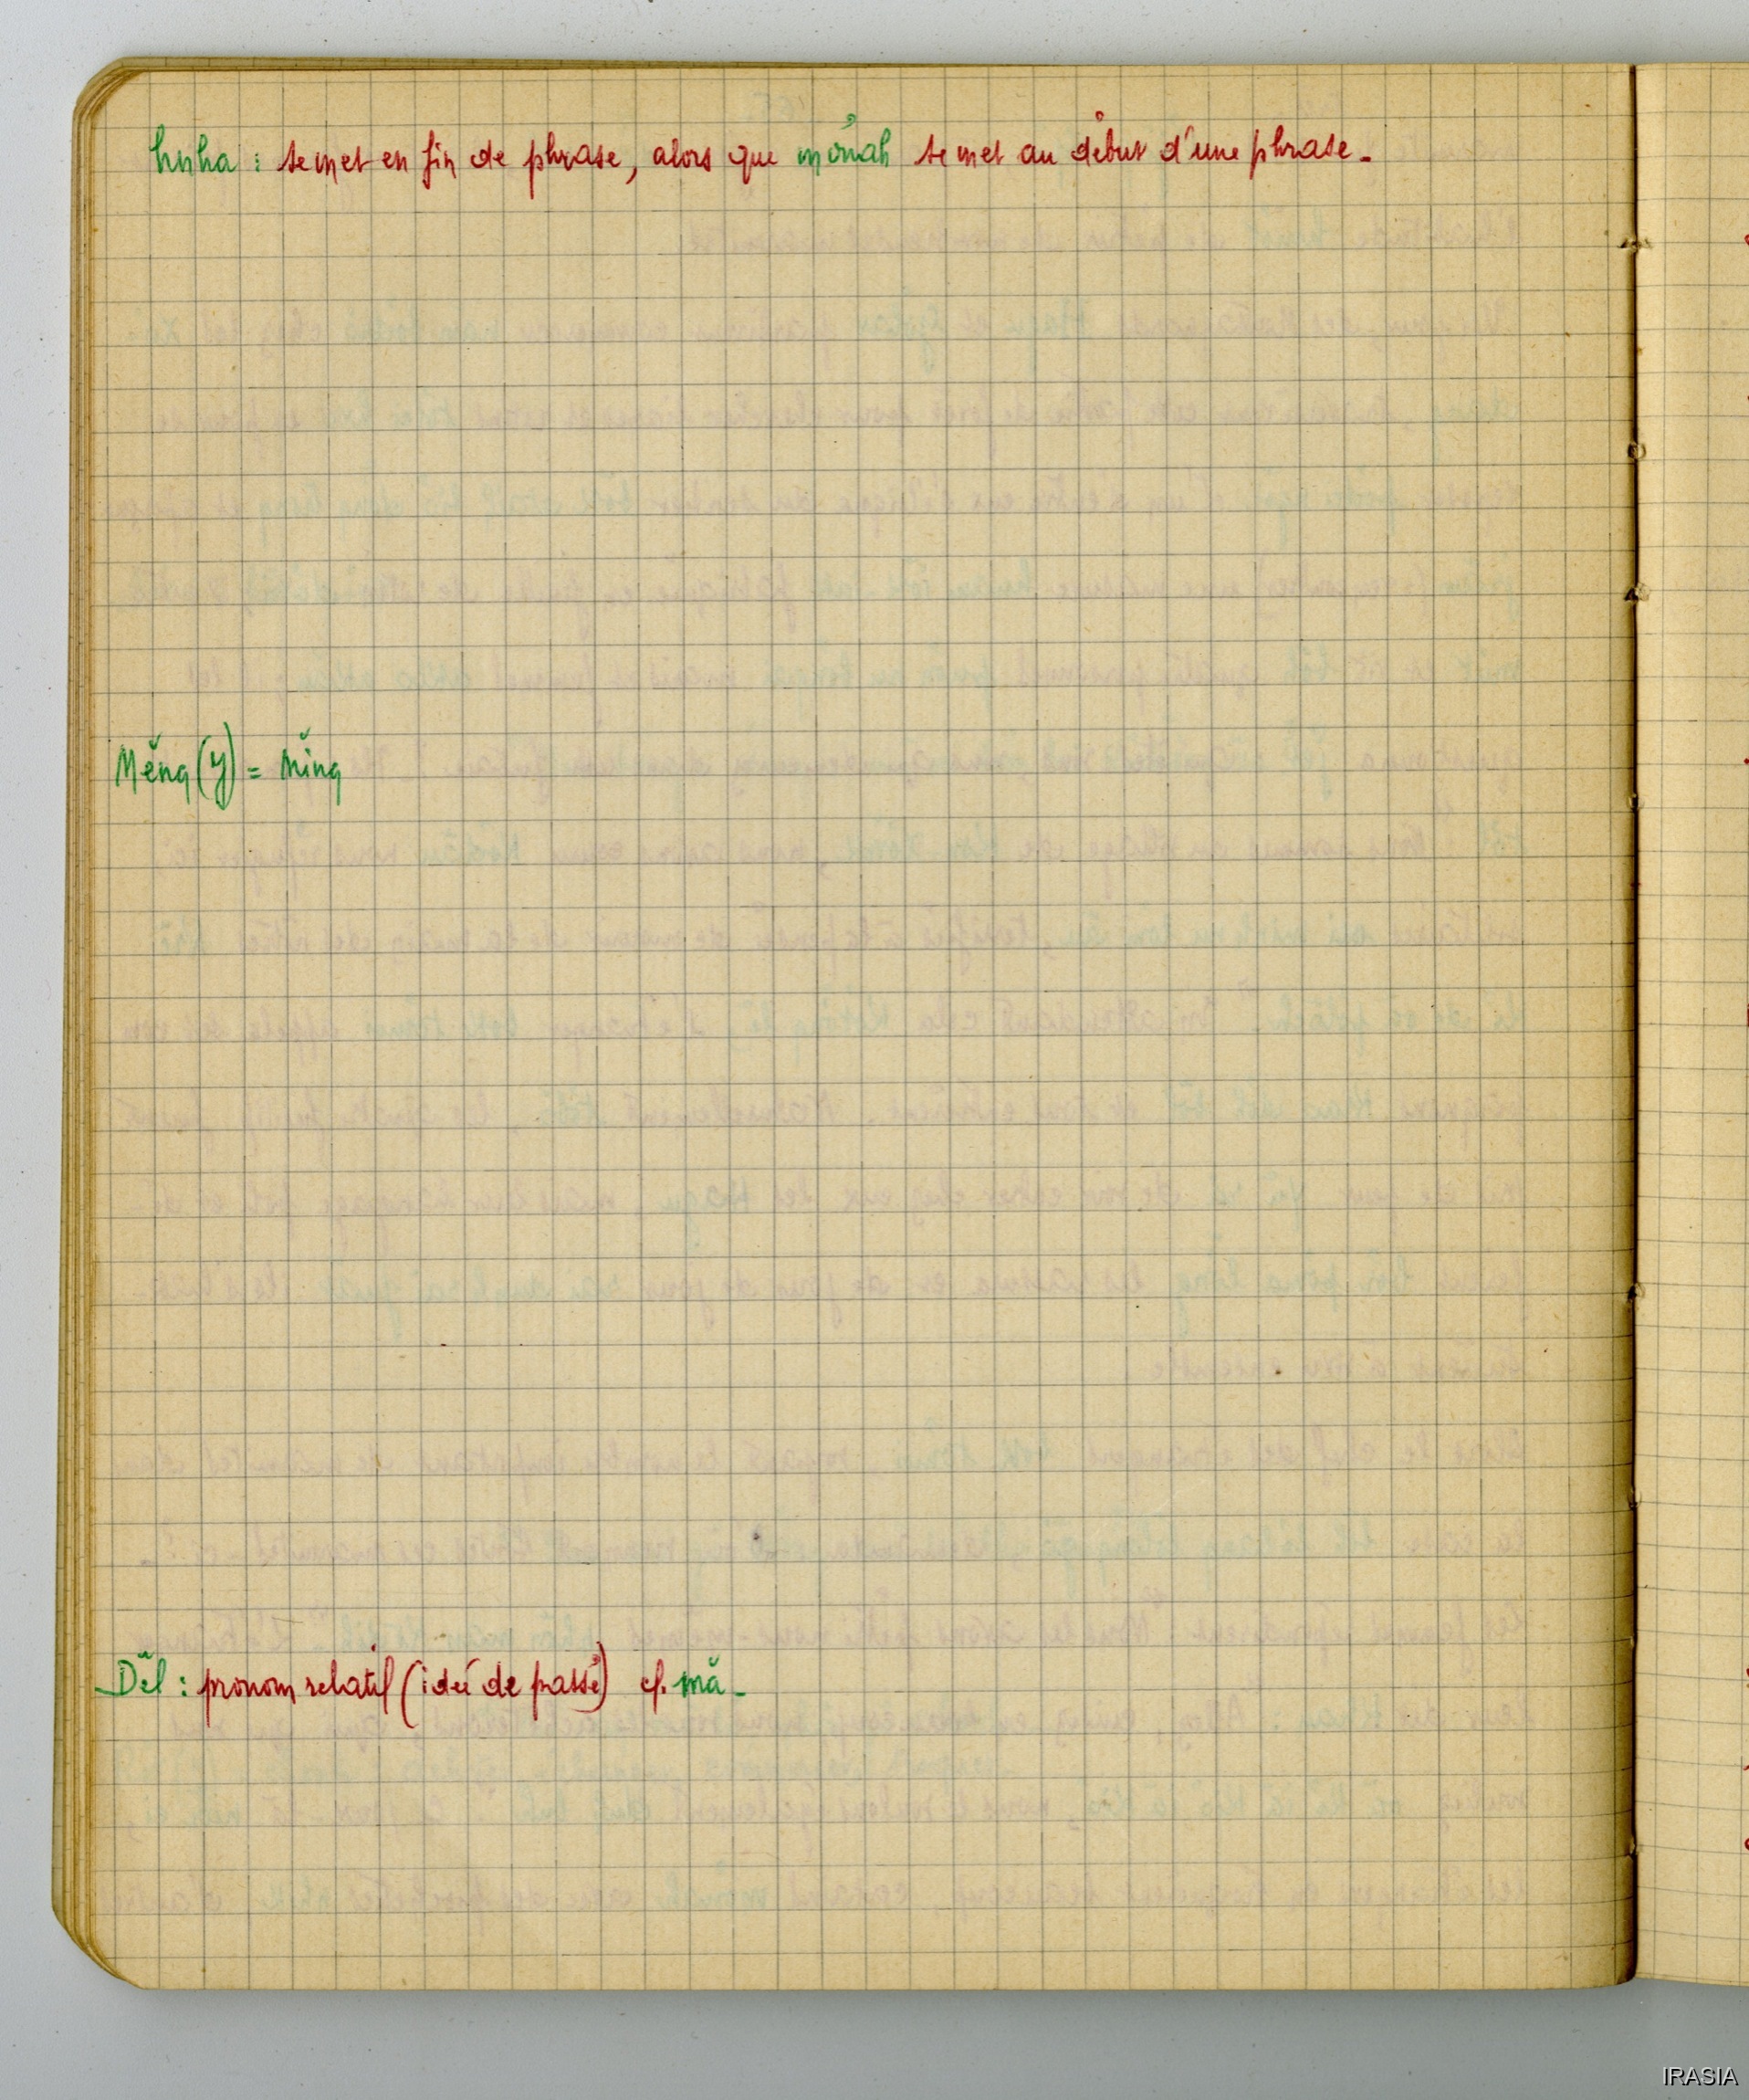 hnha : se met en fin de phrase, alors que mơnah se met au début d'une phrase.
Mĕng (y) = ning
Dĕl : pronom relatif (idée de passé) cf. mă.
IRASIA